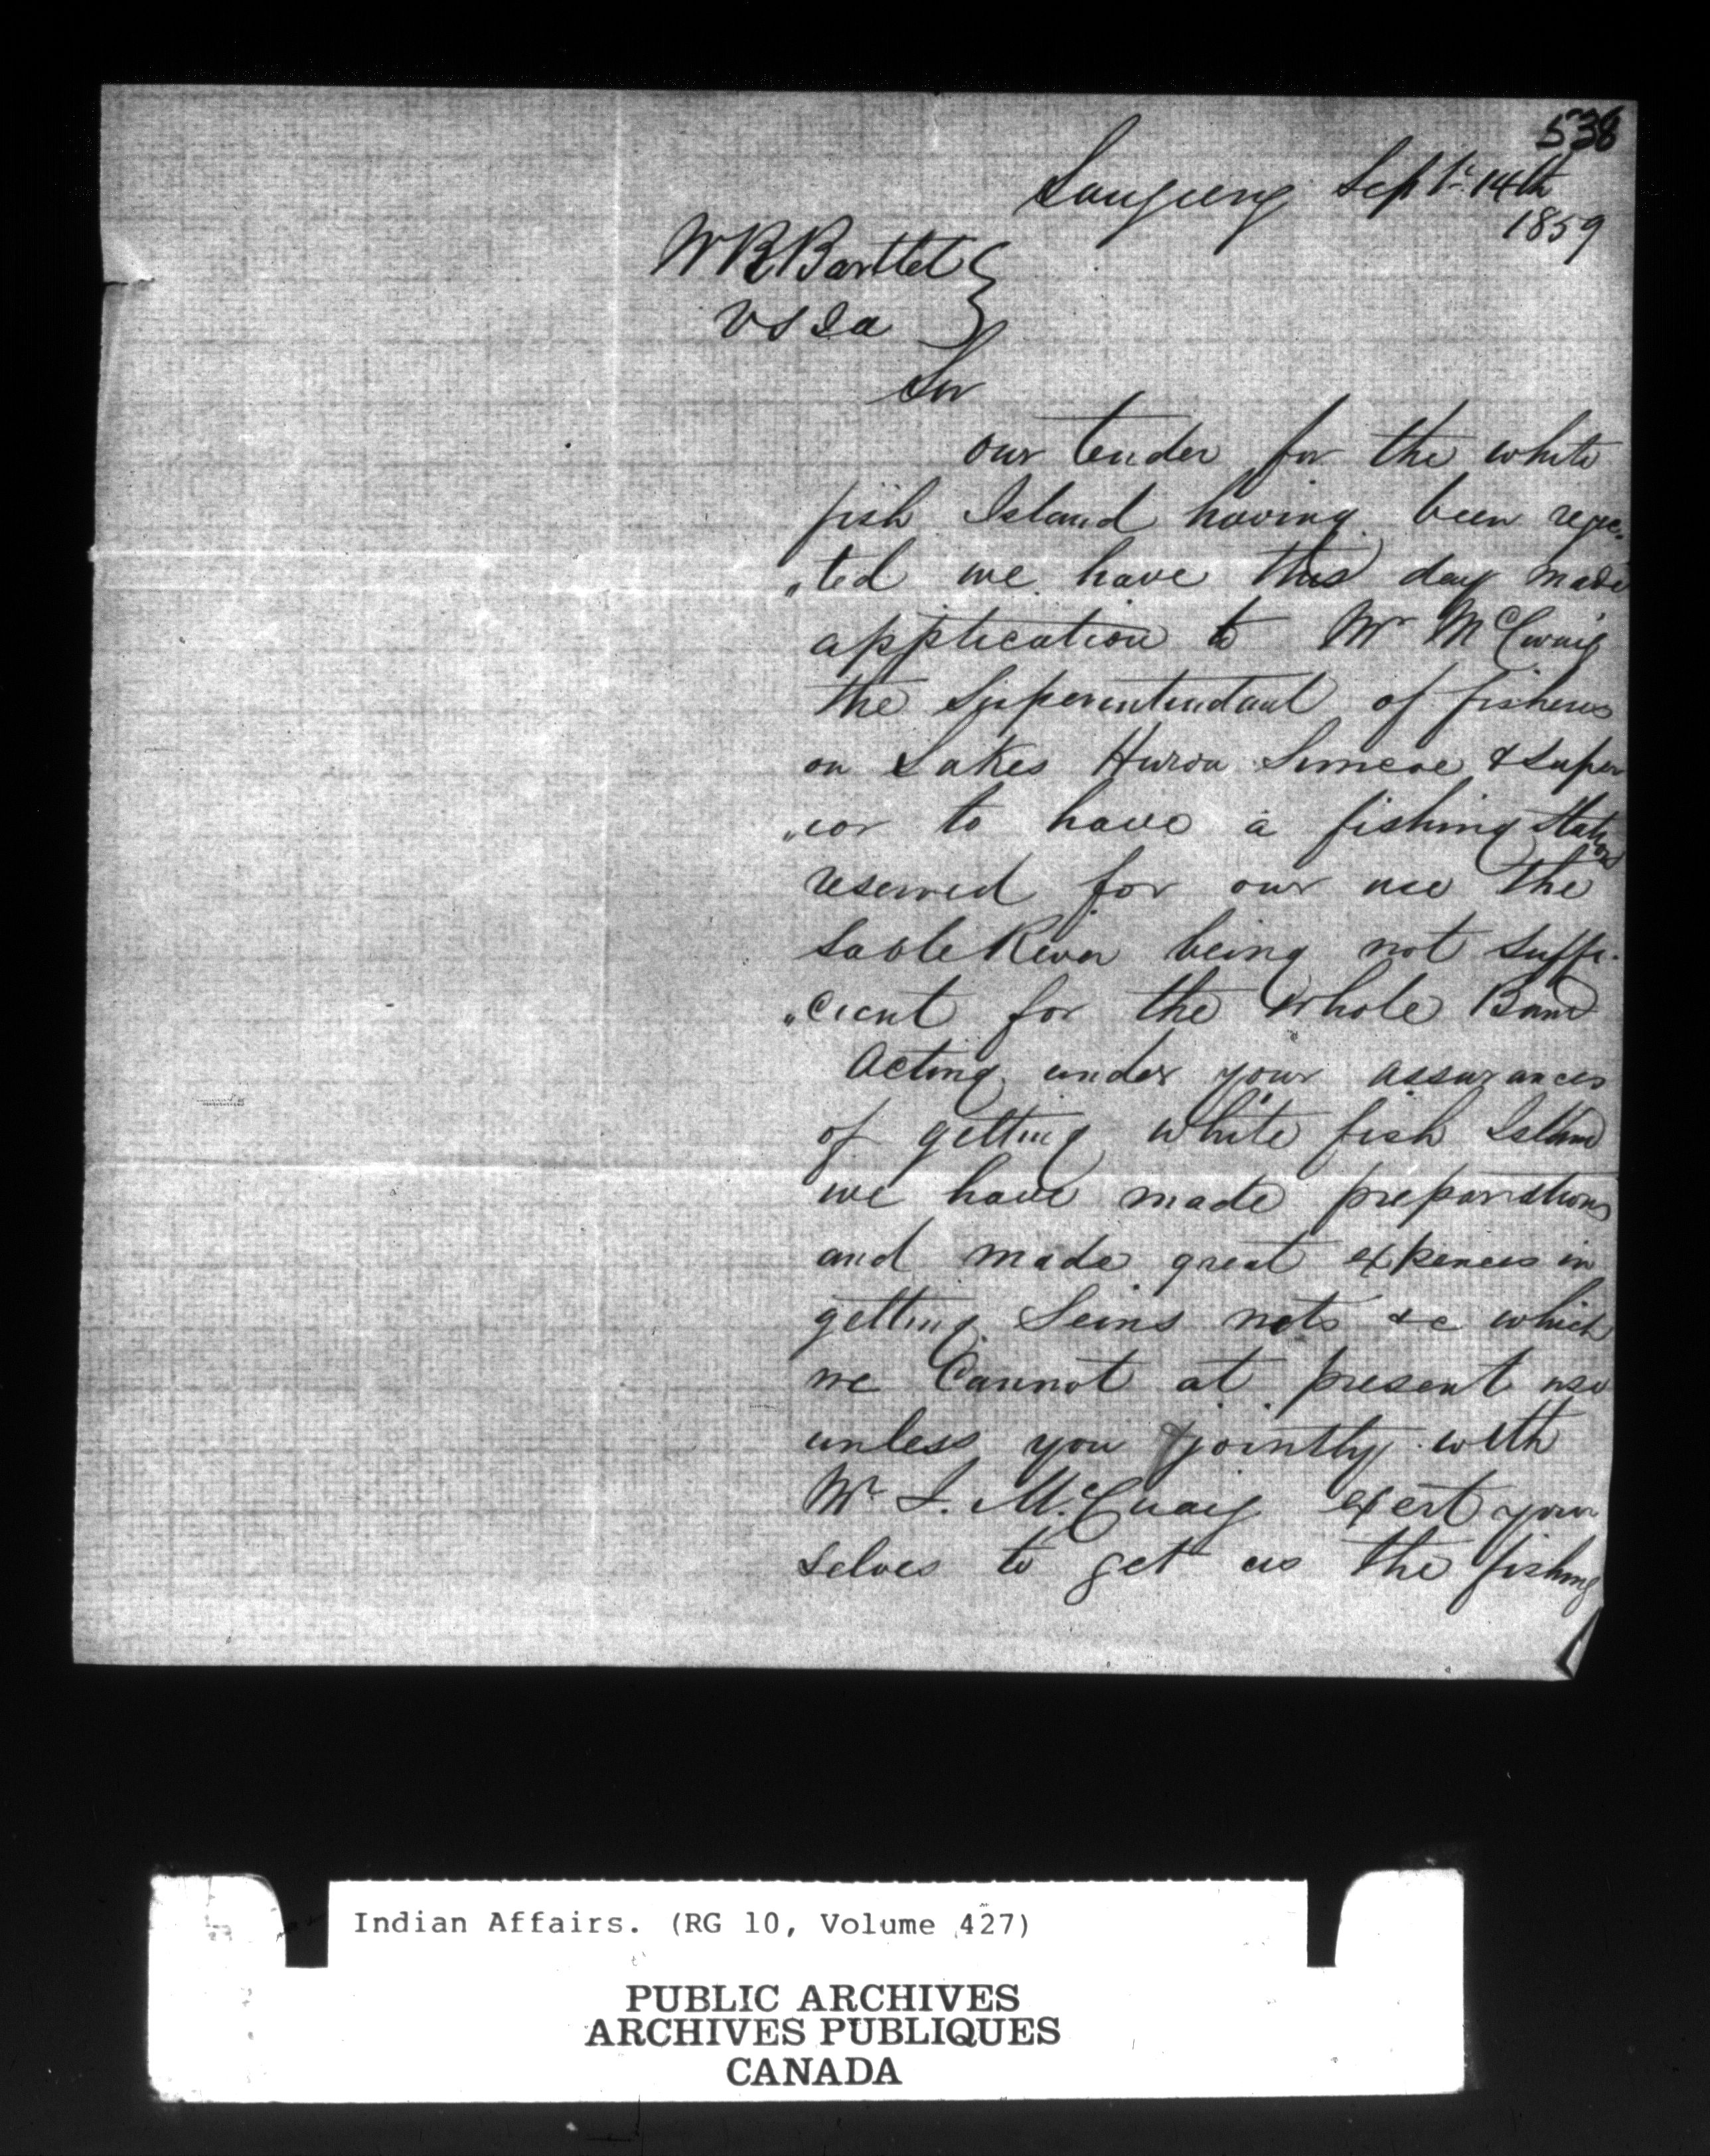 538
Saugeeng Sept. 14th
1859
W R Bartlet
V S I a
Sir
our tender for the white
fish Island having been rejec-
„ted we have this day made
application to Mr McCuaig
the Superintendant of fisheries
on Lakes Huron Simcoe & Super
„ior to have a fishing Station
reserved for our use the
Sable River being not suffi-
„cient for the whole Band
Acting under your assurances
of getting white fish Island
we have made preparations
and made great expences in
getting Seins nets &c which
we Cannot at present use
unless you jointly with
Mr McCuaig exert your
selves to get us the fishing
Indian Affairs. (RG 10, Volume 427)
PUBLIC ARCHIVES
ARCHIVES PUBLIQUES
CANADA